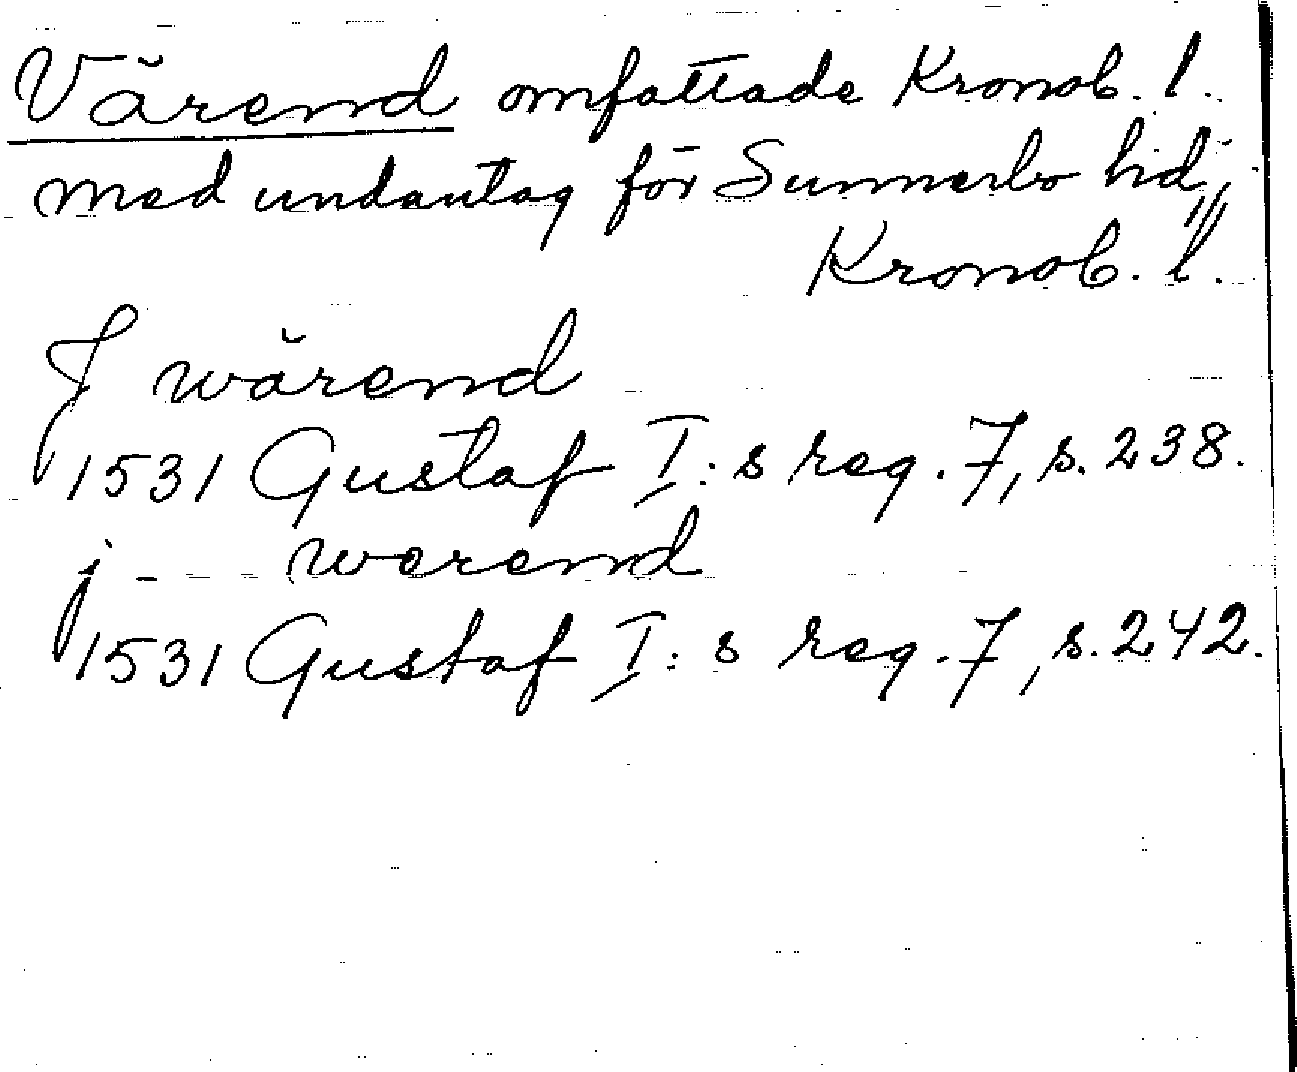 Värend omfattade Kronob. l.
med undantag för Sunnerbo hd,
Kronob. l.
J wärend
1531 Gustaf I:s reg. 7, s. 238.
j werend
1531 Gustaf I:s reg. 7, s. 242.